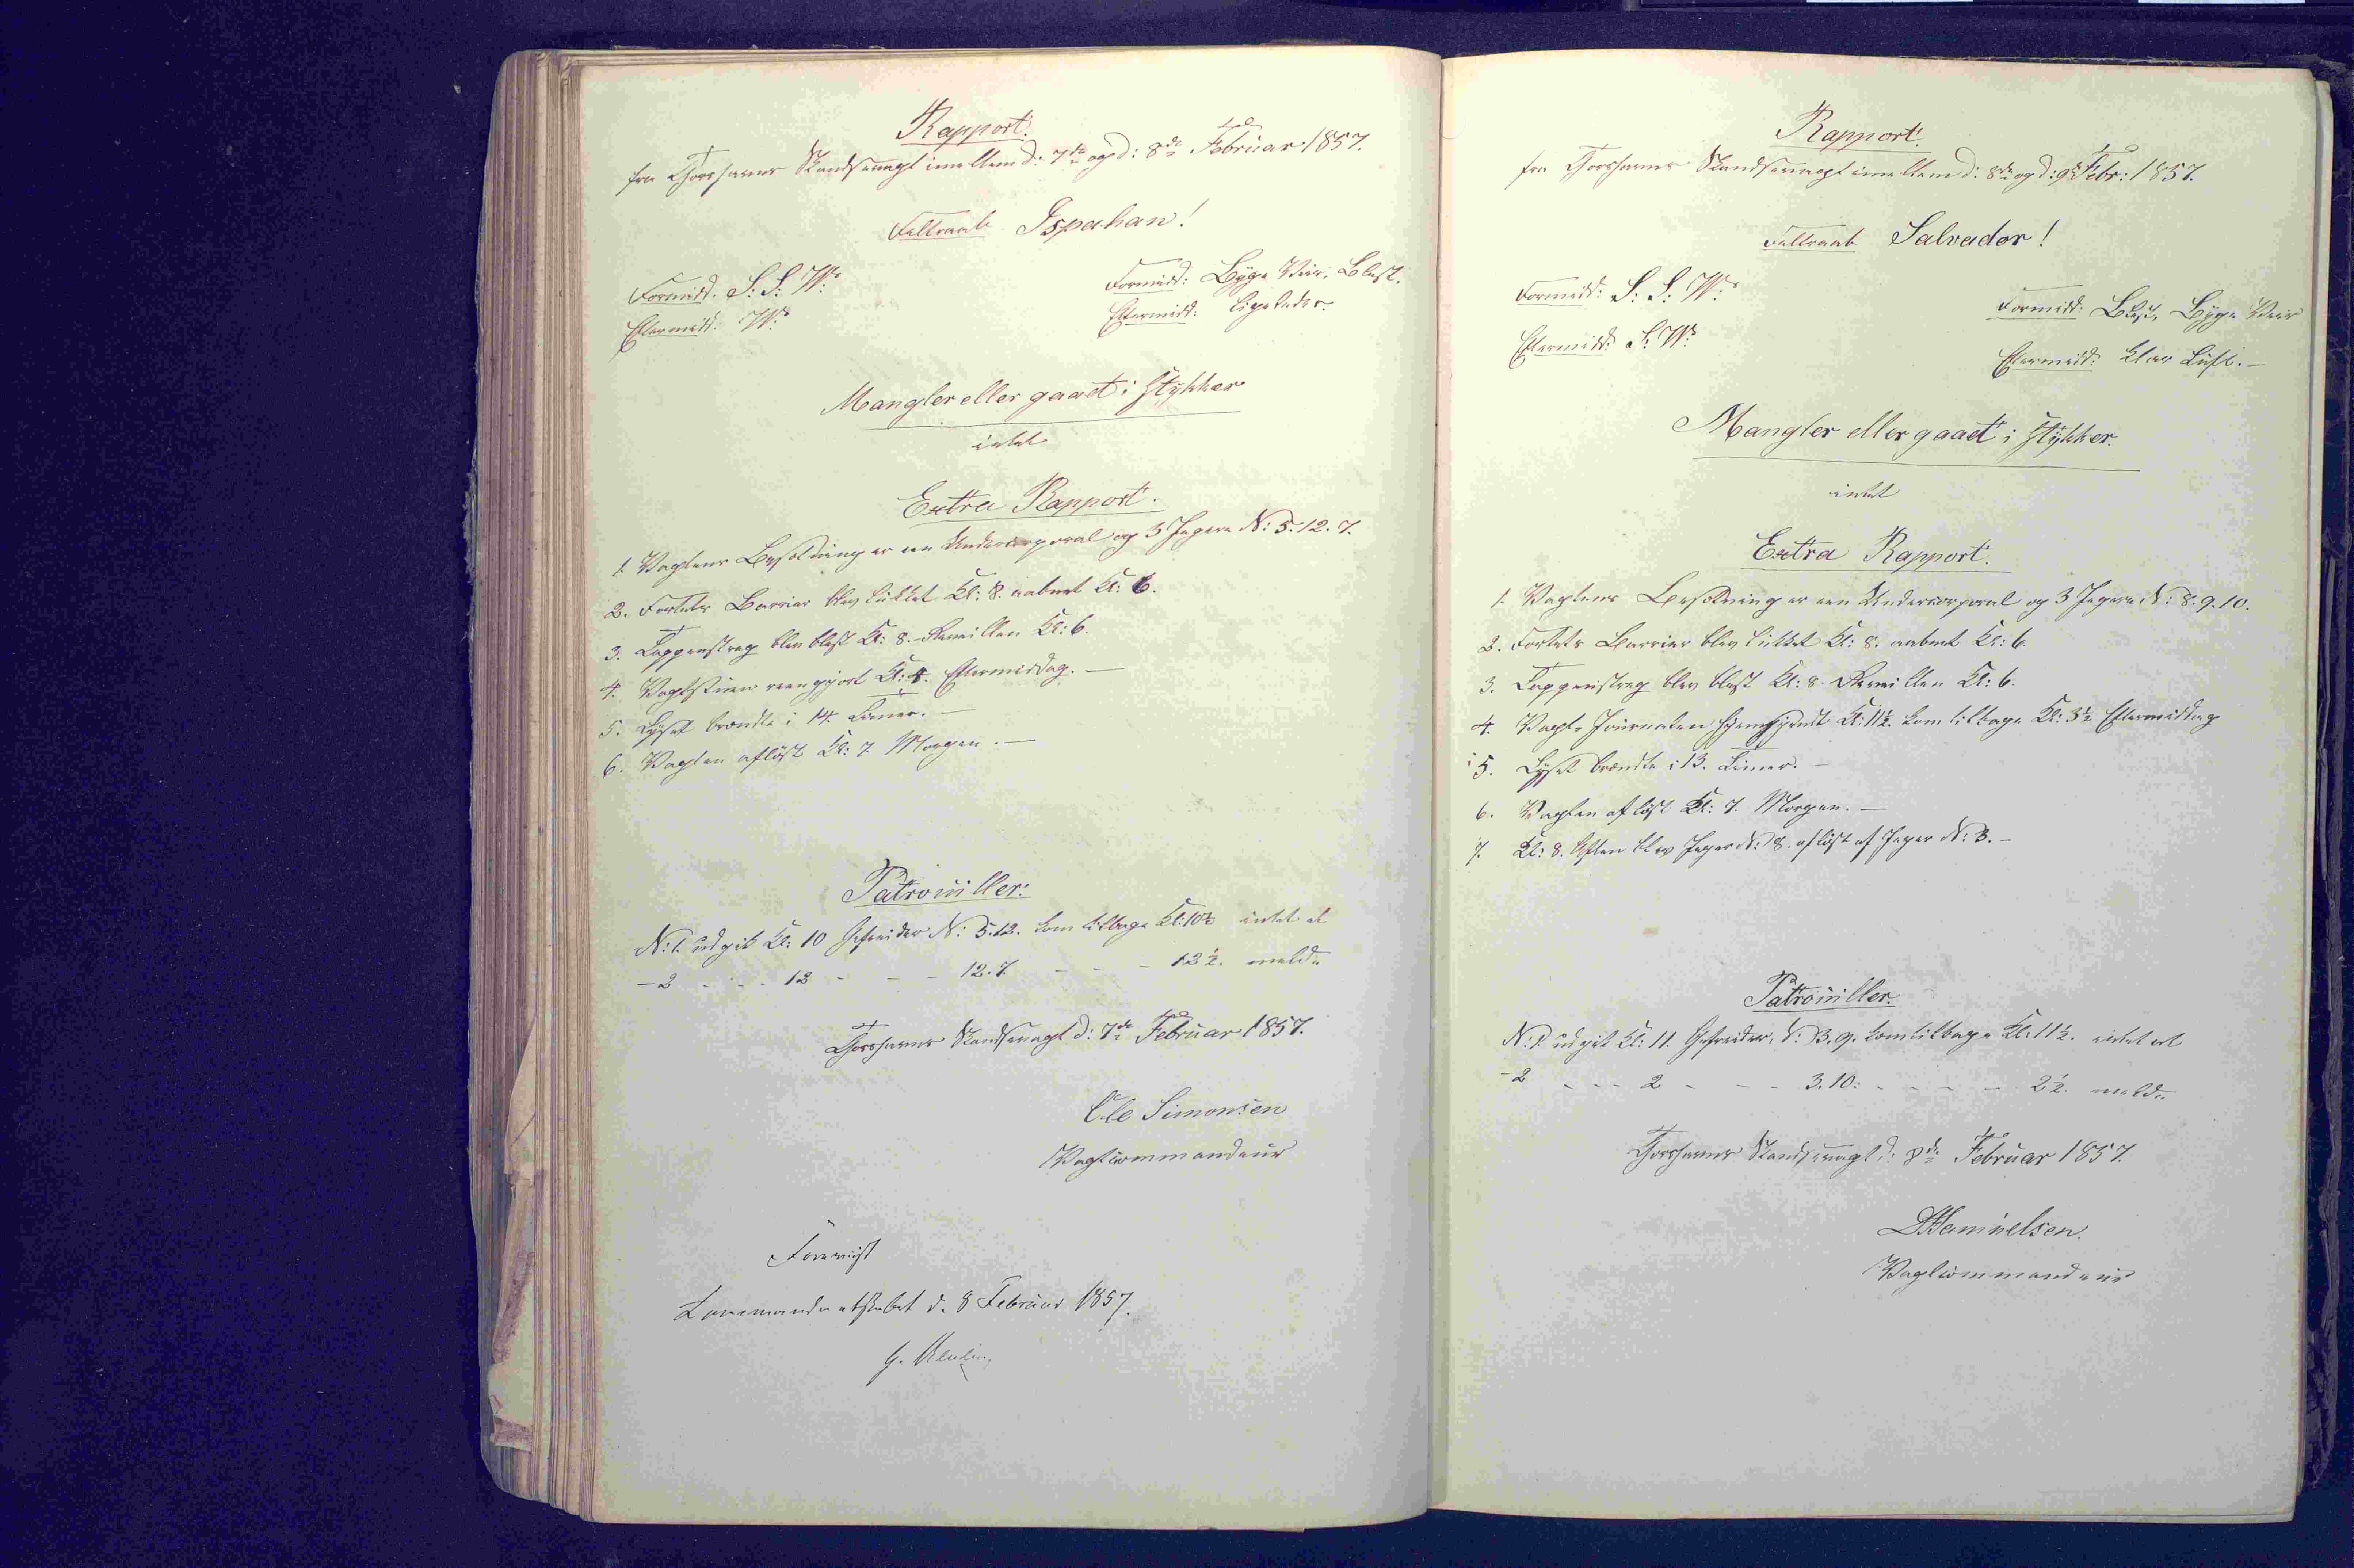 Rapport.
fra Thorshavns Skandsevagt imellem d: 7de og d: 8de Februar 1857.
Feltraab Ispahan!
Formidd. S: S: W:
Eftermidd: W:
Formidd: Byge Veir, Blæst.
Eftermidd: ligeledes
Mangler eller gaaet i Stykker
intet
Extra Rapport.
1. Vagtens Besætning er een Undercorporal og 3 Jægere N: 5. 12. 7.
2. Fortets Barrier blev lukket Kl: 8. aabnet Kl: 6.
3. Tappenstreg blev blæst Kl: 8. Reveillen Kl: 6.
4. Vagtstuen reengjort Kl: 4. Eftermiddag. —
5. Lyset brændte i 14 Timer. —
6. Vagten afløst Kl: 7 Morgen. —
Patrouiller.
N: 1. udgik Kl: 10 Gefreider N: 5. 12. kom tilbage Kl: 10½ intet at
- 2 - - - 12 - - - 12. 7. - - - 12½. melde
Thorshavns Skandsevagt d: 7de Februar 1857.
Ole Simonsen
Vagtcommandeur
Forevist
Kommandantskabet d. 8 Februar 1857.
Rapport.
fra Thorshavns Skandsevagt imellem d: 8de og d: 9de Febr: 1857.
Feltraab Salvador!
Formidd: S: S: W:
Eftermidd: S. W:
Formidd: Blæst, Byge Veir
Eftermidd: klar Luft. —
Mangler eller gaaet i Stykker.
intet
Extra Rapport.
1. Vagtens Besætning er een Undercorporal og 3 Jægere N: 8. 9. 10.
2. Fortets Barrier blev lukket Kl: 8. aabnet Kl: 6
3. Tappenstreg blev blæst Kl: 8 Reveillen Kl: 6.
4. Vagts Journalen Kl: 11½. kom tilbage Kl: 3½ Eftermiddag
5. Lyset brændte i 13. Timer. —
6. Vagten afløst Kl: 7. Morgen. —
7. Kl: 8. Aften blev Jæger N: 8. afløst af Jæger N: 3. —
Patrouiller.
N: 1. udgik Kl: 11. Gefreider N: 3. 9. kom tilbage Kl: 11½. intet at
- 2 - - - 2 - - - 3. 10. - - - - 2½. melde
Thorshavns Skandsevagt d: 8de Februar 1857.
Samuelsen
Vagtcommandeur